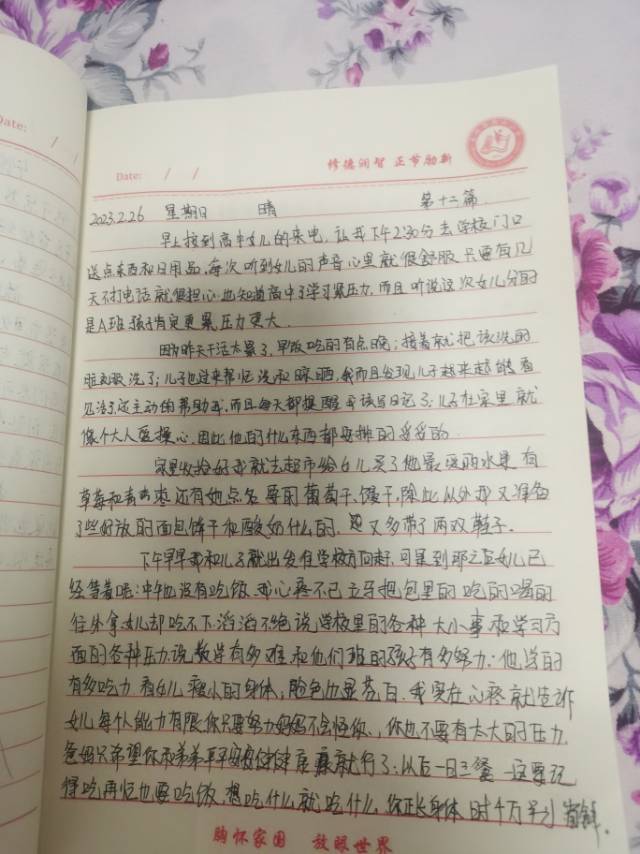 Date:
/ /
Date: / /
修德润智 正节励新
2023.2.26 星期日 晴 第十二篇
早上接到高中女儿的来电,让我下午2:30分去学校门口
送点东西和日用品,每次听到女儿的声音心里就很舒服只要有几
天不打电话就很担心也知道高中了学习紧压力,而且听说这次女儿分的
是A班孩子肯定更累压力更大.
因为昨天干活太累了,早饭吃的有点晚;接着就把该洗的
脏衣服洗了;儿子也过来帮忙洗和晾晒,我而且发现儿子越来越能看
见活了,还主动的帮助我,而且每天都提醒我该写日记了;儿子在家里就
像个大人爱操心,因此他的什么东西都安排的妥妥的.
家里收拾好我就去超市给女儿买了他最爱的水果有
草莓和青枣还有她点名要的葡萄干、馍干,除此以外我又准备
了些好放的面包饼干和酸奶什么的,还又多带了两双鞋子.
下午早早我和儿子就出发往学校方向赶,可是到那之后女儿已
经等着呢;中午也没有吃饭我心疼不已立马把包里的吃的喝的
往外拿女儿却吃不下,滔滔不绝说学校里的各种大小事和学习方
面的各种压力说数学有多难和他们班的孩子有多努力;他学的
有多吃力看女儿瘦小的身体,脸色也显苍白,我实在心疼就告诉
女儿每个人能力有限你只要努力妈妈不会怪你、你也不要有太大的压力,
爸妈只希望你和弟弟平平安安健健康康就行了;以后一日三餐一定要记
得吃再忙也要吃饭,想吃什么就吃什么,你正长身体时千万半儿省钱.
胸怀家国 放眼世界